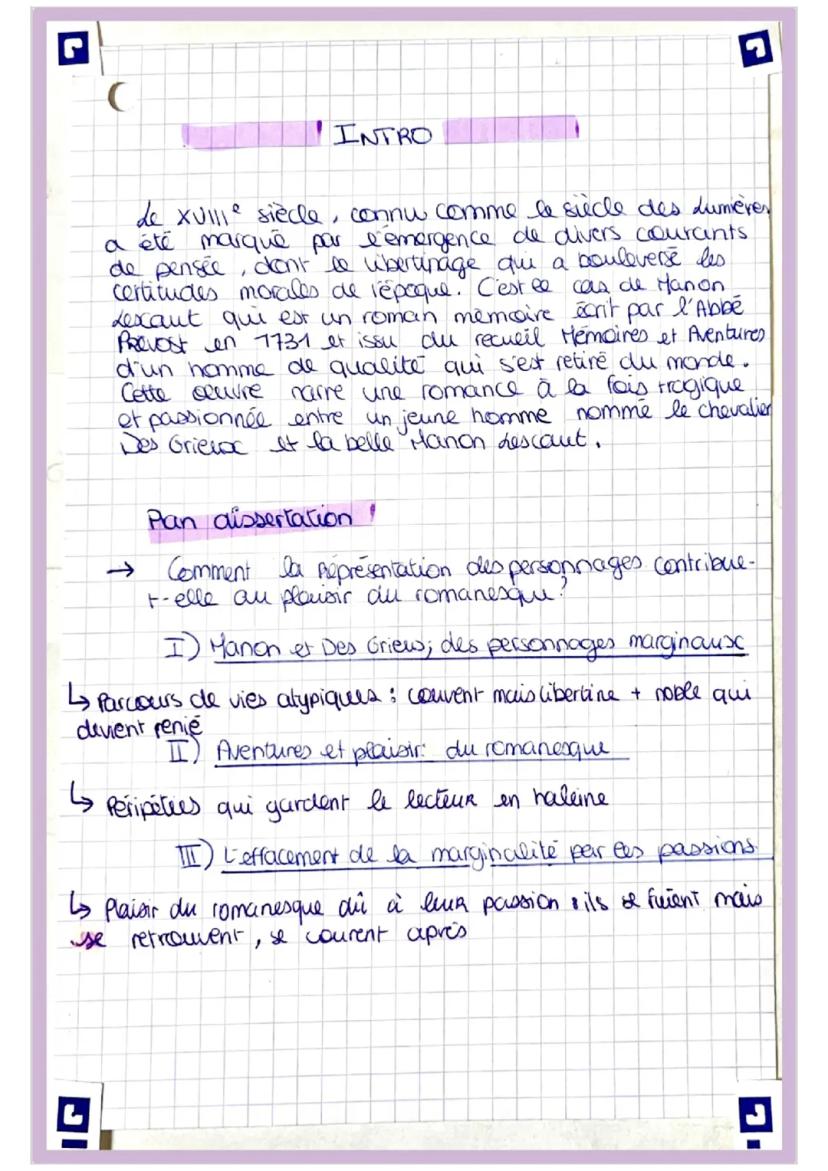 INTRO
Le XVIII<sup>e</sup> siècle, connu comme le siècle des Lumières
a été marqué par l'émergence de divers courants
de pensée, dont le libertinage qui a bouleversé les
certitudes morales de l'époque. C'est le cas de Manon
Lescaut qui est un roman mémoire écrit par l'Abbé
Prévost en 1731 et issu du recueil Mémoires et Aventures
d'un homme de qualité qui s'est retiré du monde.
Cette œuvre narre une romance à la fois tragique
et passionnée entre un jeune homme nommé le chevalier
Des Grieux et la belle Manon Lescaut.
Plan dissertation
→ Comment la représentation des personnages contribue-
t-elle au plaisir du romanesque?
I) Manon et Des Grieux; des personnages marginaux
↳ Parcours de vies atypiques : couvent mais libertine + noble qui
devient renié
II) Aventures et plaisir: du romanesque
↳ Péripéties qui gardent le lecteur en haleine
III) L'effacement de la marginalité par les passions
↳ Plaisir du romanesque dû à leur passion : ils se fuient mais
se retrouvent, se courent après